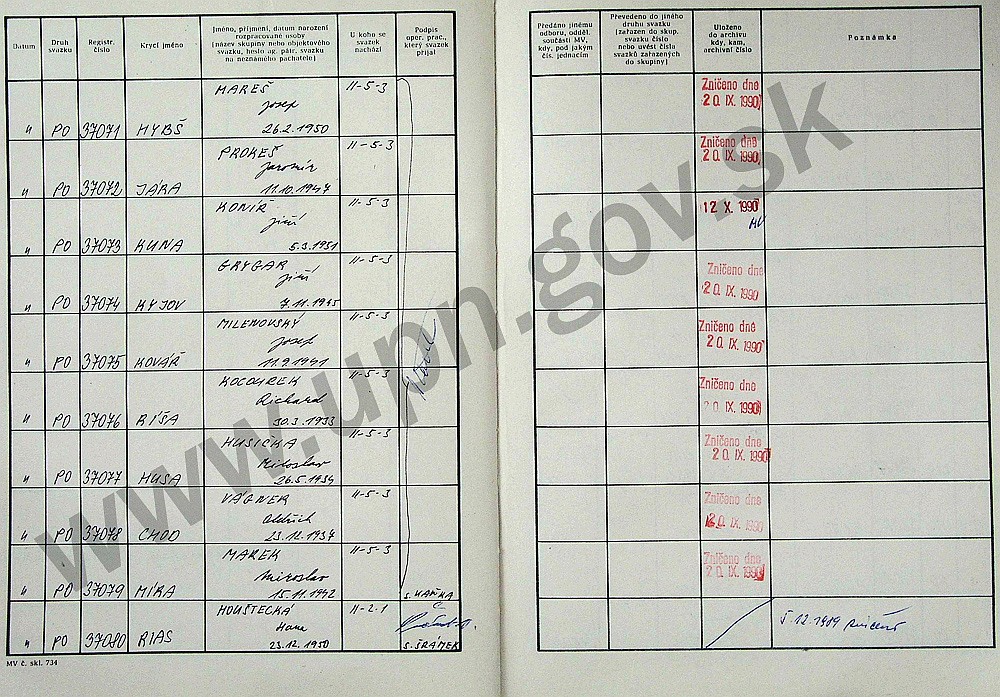 Datum
Druh
svazku
Registr.
Krycí jméno
Jméno, příjmení, datum narození
rozpracované osoby
(název skupiny nebo objektového
svazku, heslo ag. pátr. svazku
na neznámého pachatele)
U koho se
svazek
nachází
Podpis
oper. prac.,
který svazek
přijal
Předáno jinému
odboru, odděl.
součásti MV,
kdy, pod jakým
čís. jednacím
Převedeno do jiného
druhu svazku
(zařazen do skup.
svazku číslo
nebo uvést čísla
svazků zařazených
do skupiny)
Uloženo
do archivu
kdy, kam,
archivní číslo
Poznámka
MAREŠ 11-5-3 Zničeno dne
Josef 20. IX. 1990
" PO 37071 HYBŠ 26.2.1950
PROKEŠ 11-5-3 Zničeno dne
Jaromír 20. IX. 1990
" PO 37072 JÁRA 11.10.1947
KONÍŘ 11-5-3 12 X. 1990
Jiří
" PO 37073 KUNA 5.3.1951
GRYGAR 11-5-3 Zničeno dne
Jiří 20. IX. 1990
" PO 37074 KYJOV 7.11.1945
MILENOVSKÝ 11-5-3 Zničeno dne
Josef 20. IX. 1990
" PO 37075 KOVÁŘ 11.9.1941
KOCOUREK 11-5-3 Zničeno dne
Richard 20. IX. 1990
" PO 37076 RÍŠA 30.3.1933
HUSIČKA 11-5-3 Zničeno dne
Miloslav 20. IX. 1990
" PO 37077 HUSA 26.5.1934
VÁGNER 11-5-3 Zničeno dne
Oldřich 20. IX. 1990
" PO 37078 CHOD 23.12.1937
MAREK 11-5-3 Zničeno dne
Miroslav 20. IX. 1990
" PO 37079 MÍRA 15.11.1942 s. HAŇKA
HOUŠTECKÁ 11-2-1
Hana 5.12.1989 zničen
" PO 37080 RIAS 23.12.1950 s. ŠRÁMEK
MV č. skl. 734
www.upn.gov.sk